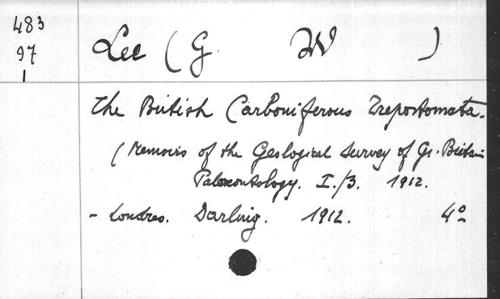 483
97
1
Lee (G. W )
The British Carboniferous Trepostomata.
(Memoirs of the Geological Survey of Gr. Britain
Palaeontology. I./3. 1912.
- Londres. Darling. 1912. 4º